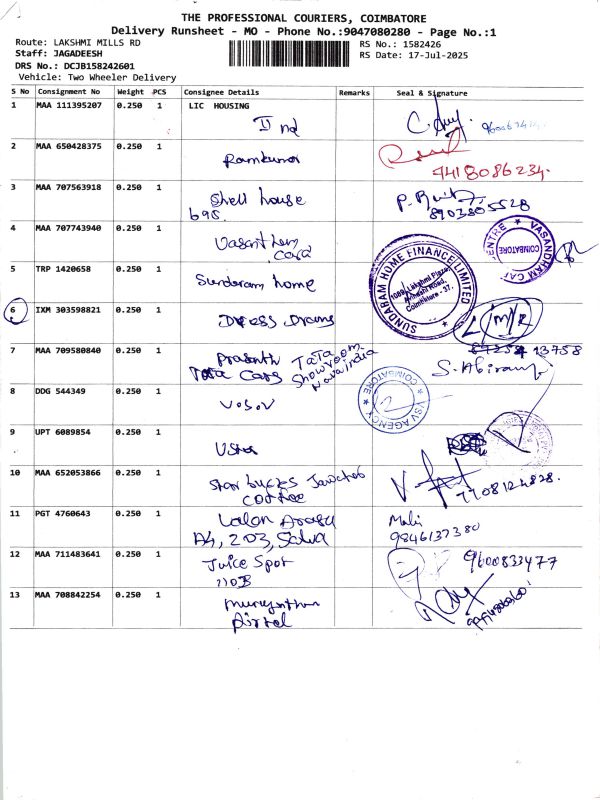 THE PROFESSIONAL COURIERS, COIMBATORE
Delivery Runsheet - MO - Phone No.:9047080280 - Page No.:1
Route: LAKSHMI MILLS RD
RS No.: 1582426
Staff: JAGADEESH
RS Date: 17-Jul-2025
DRS No.: DCJB158242601
Vehicle: Two Wheeler Delivery
S No Consignment No Weight PCS Consignee Details Remarks Seal & Signature
1 MAA 111395207 0.250 1 LIC HOUSING
II nd
2 MAA 650428375 0.250 1
Ramkumar
9418086234.
3 MAA 707563918 0.250 1
Shell house
695.
8903805528
4 MAA 707743940 0.250 1
Vasanthem
Card
VASANDHAM CAR CENTRE
COIMBATORE
5 TRP 1420658 0.250 1
Sundaram home
SUNDARAM HOME FINANCE LIMITED
1089, Lakshmi Plaza,
Avinashi Road,
Coimbatore - 37.
6 IXM 303598821 0.250 1
Dress Drams
7 MAA 709580840 0.250 1
Prasanth Tata
Tata Cars Showroom
Navaindia
13758
S. Abirami
8 DDG 544349 0.250 1
V.S.V
VSV AGENCY
COIMBATORE
9 UPT 6089854 0.250 1
Usha
10 MAA 652053866 0.250 1
Star bucks
Coffee
7708124828.
11 PGT 4760643 0.250 1
Lalan Arasu
A4, 203, Salva
Mali
9846137380
12 MAA 711483641 0.250 1
Juice Spot
110B
9600833477
13 MAA 708842254 0.250 1
Muruganthan
Airtel